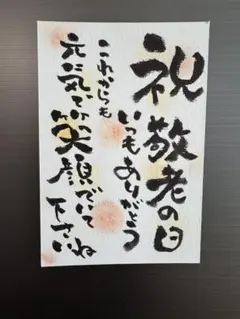 祝敬老の日
いつもありがとう
これからも
元気で笑顔でいて
下さいね